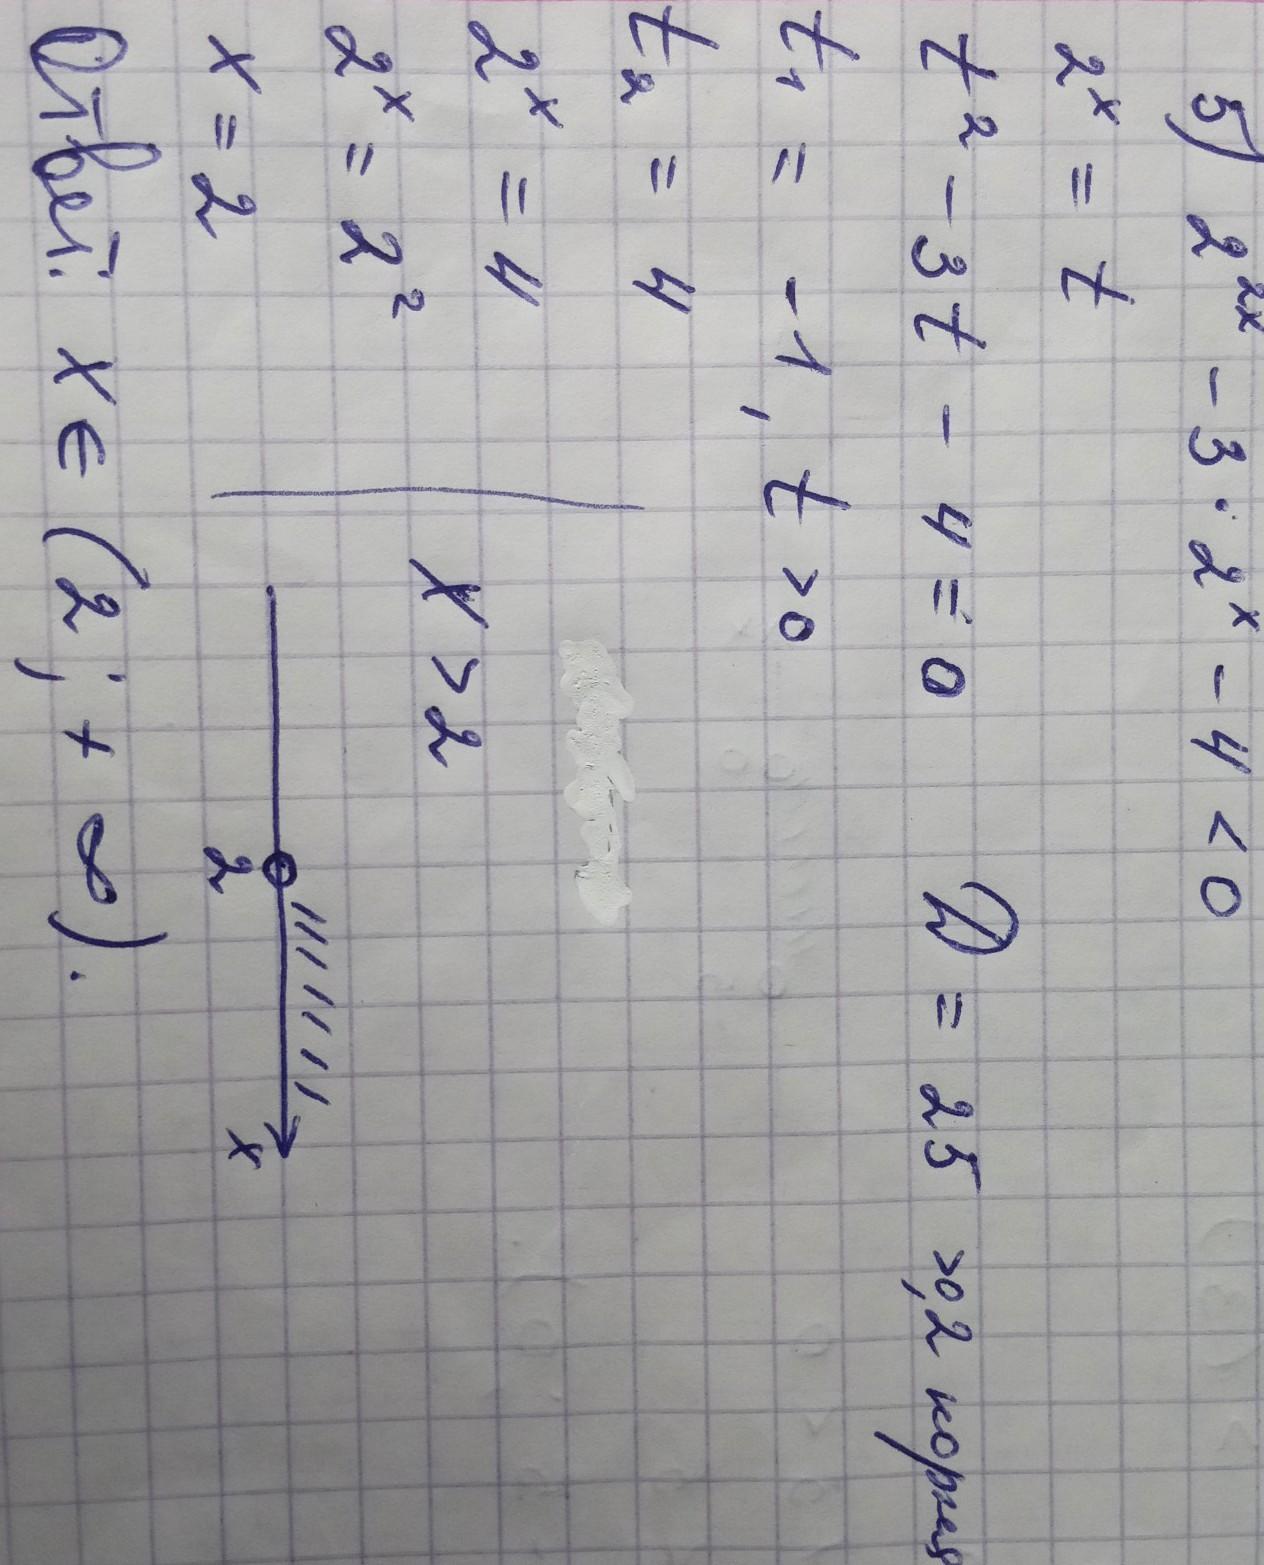 5) 2^{2x} - 3 · 2^x - 4 < 0
2^x = t
t^2 - 3t - 4 = 0 D = 25 >0, 2 корня
t_1 = -1, t >0
t_2 = 4
2^x = 4
2^x = 2^2 x >2
x = 2
2 x
Ответ: x ∈ (2; + ∞).